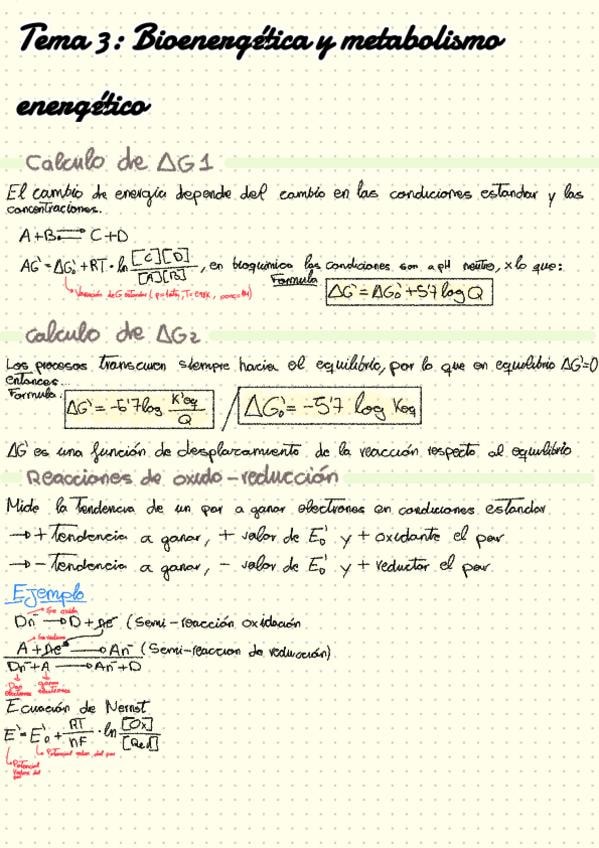 Tema 3: Bioenergética y metabolismo
energético
Calculo de ΔG1
El cambio de energía depende del cambio en las condiciones estandar y las
concentraciones.
A+B ⇌ C+D
ΔG' = ΔG'₀ + RT · ln [C][D] / [A][B] , en bioquímica las condiciones son a pH neutro, x lo que:
Formula ΔG' = ΔG'₀ + 5'7 log Q
Variación de G estandar (p=1atm, T=298K, conc=1M)
Calculo de ΔG2
Los procesos transcurren siempre hacia el equilibrio, por lo que en equilibrio ΔG'=0
entonces..
Formula: ΔG' = -5'7 log K'eq / Q / ΔG'₀ = -5'7 log Keq
ΔG' es una función de desplazamiento de la reacción respecto al equilibrio
Reacciones de oxido-reducción
Mide la tendencia de un par a ganar electrones en condiciones estandar
→ + Tendencia a ganar, + valor de E'₀ y + oxidante el par
→ - Tendencia a ganar, - valor de E'₀ y + reductor el par
Ejemplo
Se oxida
Dn⁻ → D + ne⁻ (Semi-reacción oxidación
Se reduce
A + ne⁻ → An⁻ (Semi-reaccion de reducción)
Dn⁻ + A → An⁻ + D
Dan ganan
electrones electrones
Ecuación de Nernst
E' = E'₀ + RT / nF · ln [Ox] / [Red]
Potencial redox del par
Potencial
del
par